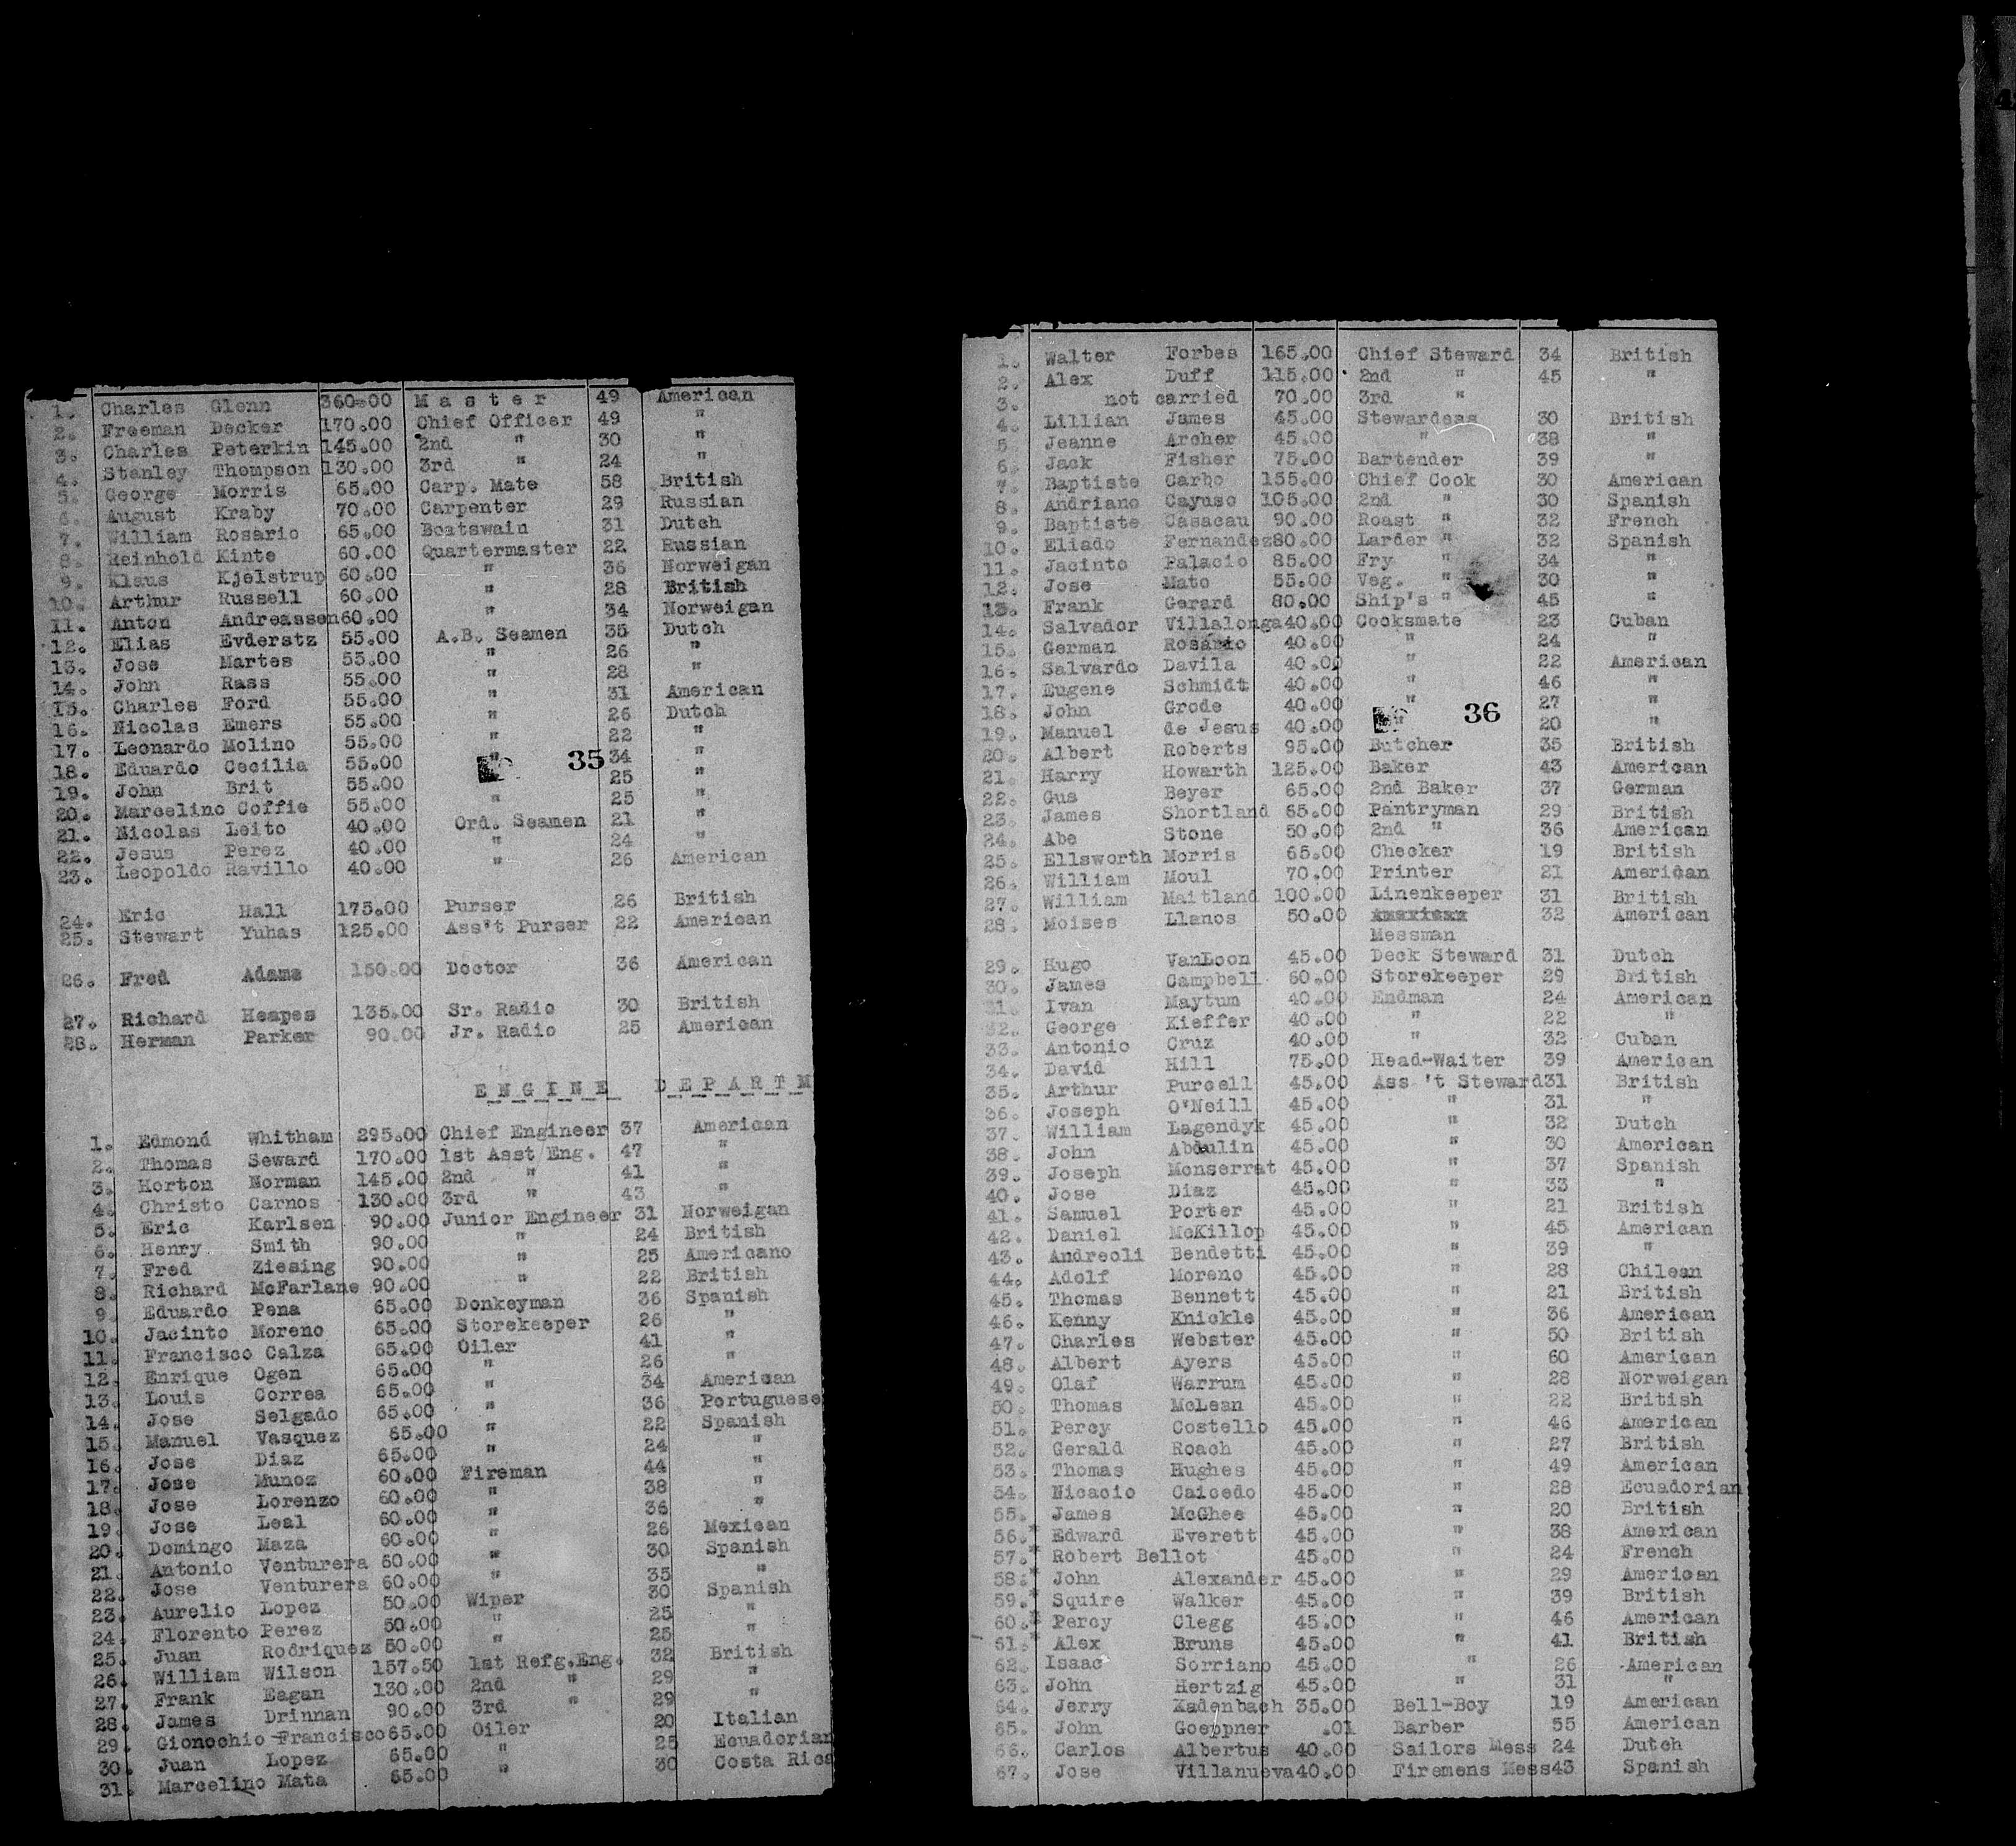 1. Charles Glenn 360.00 Master 49 American
2. Freeman Decker 170.00 Chief Officer 49 "
3. Charles Peterkin 145.00 2nd " 30 "
4. Stanley Thompson 130.00 3rd " 24 "
5. George Morris 65.00 Carp. Mate 58 British
6. August Kraby 70.00 Carpenter 29 Russian
7. William Rosario 65.00 Boatswain 31 Dutch
8. Reinhold Kinte 60.00 Quartermaster 22 Russian
9. Klaus Kjelstrup 60.00 " 36 Norweigan
10. Arthur Russell 60.00 " 28 British
11. Anton Andreassen 60.00 " 34 Norweigan
12. Elias Evderstz 55.00 A.B. Seamen 35 Dutch
13. Jose Martes 55.00 " 26 "
14. John Rass 55.00 " 28 "
15. Charles Ford 55.00 " 31 American
16. Nicolas Emers 55.00 " 26 Dutch
17. Leonardo Molino 55.00 " 22 "
18. Eduardo Cecilia 55.00 " 34 "
35
19. John Brit 55.00 25 "
20. Marcelino Coffie 55.00 " 25 "
21. Nicolas Leito 40.00 Ord. Seamen 21 "
22. Jesus Perez 40.00 " 24 "
23. Leopoldo Ravillo 40.00 " 26 American
24. Eric Hall 175.00 Purser 26 British
25. Stewart Yuhas 125.00 Ass't Purser 22 American
26. Fred Adams 150.00 Doctor 36 American
27. Richard Heapes 135.00 Sr. Radio 30 British
28. Herman Parker 90.00 Jr. Radio 25 American
ENGINE DEPARTM
1. Edmond Whitham 295.00 Chief Engineer 37 American
2. Thomas Seward 170.00 1st Asst Eng. 47 "
3. Horton Norman 145.00 2nd " 41 "
4. Christo Carnos 130.00 3rd " 43 "
5. Eric Karlsen 90.00 Junior Engineer 31 Norweigan
6. Henry Smith 90.00 " 24 British
7. Fred Ziesing 90.00 " 25 Americano
8. Richard McFarlane 90.00 " 22 British
9. Eduardo Pena 65.00 Donkeyman 36 Spanish
10. Jacinto Moreno 65.00 Storekeeper 26 "
11. Francisco Calza 65.00 Oiler 41 "
12. Enrique Ogen 65.00 " 26 "
13. Louis Correa 65.00 " 34 American
14. Jose Selgado 65.00 " 36 Portuguese
15. Manuel Vasquez 65.00 " 22 Spanish
16. Jose Diaz 65.00 " 24 "
17. Jose Munoz 60.00 Fireman 44 "
18. Jose Lorenzo 60.00 " 38 "
19. Jose Leal 60.00 " 36 "
20. Domingo Maza 60.00 " 26 Mexican
21. Antonio Venturera 60.00 " 30 Spanish
22. Jose Venturera 60.00 " 35 "
23. Aurelio Lopez 50.00 Wiper 30 Spanish
24. Florento Perez 50.00 " 25 "
25. Juan Rodriquez 50.00 " 25 "
26. William Wilson 157.50 1st Refg.Eng. 32 British
27. Frank Eagan 130.00 2nd " 29 "
28. James Drinnan 90.00 3rd " 29 "
29. Gionochio Francisco 65.00 Oiler 20 Italian
30. Juan Lopez 65.00 " 25 Ecuadorian
31. Marcelino Mata 65.00 " 30 Costa Rica
1. Walter Forbes 165.00 Chief Steward 34 British
2. Alex Duff 115.00 2nd " 45 "
3. not carried 70.00 3rd "
4. Lillian James 45.00 Stewardess 30 British
5. Jeanne Archer 45.00 " 38 "
6. Jack Fisher 75.00 Bartender 39 "
7. Baptiste Carbo 155.00 Chief Cook 30 American
8. Andriano Cayuso 105.00 2nd " 30 Spanish
9. Baptiste Casacau 90.00 Roast " 32 French
10. Eliado Fernandez 80.00 Larder " 32 Spanish
11. Jacinto Palacio 85.00 Fry " 34 "
12. Jose Mato 55.00 Veg. " 30 "
13. Frank Gerard 80.00 Ship's " 45 "
14. Salvador Villalonga 40.00 Cooksmate 23 Cuban
15. German Rosario 40.00 " 24 "
16. Salvardo Davila 40.00 " 22 American
17. Eugene Schmidt 40.00 " 46 "
18. John Grode 40.00 " 27 "
36
19. Manuel de Jesus 40.00 " 20 "
20. Albert Roberts 95.00 Butcher 35 British
21. Harry Howarth 125.00 Baker 43 American
22. Gus Beyer 65.00 2nd Baker 37 German
23. James Shortland 65.00 Pantryman 29 British
24. Abe Stone 50.00 2nd " 36 American
25. Ellsworth Morris 65.00 Checker 19 British
26. William Moul 70.00 Printer 21 American
27. William Maitland 100.00 Linenkeeper 31 British
28. Moises Llanos 50.00 American 32 American
Messman
29. Hugo VanLoon 45.00 Deck Steward 31 Dutch
30. James Campbell 60.00 Storekeeper 29 British
31. Ivan Maytum 40.00 Endman 24 American
32. George Kieffer 40.00 " 22 "
33. Antonio Cruz 40.00 " 32 Cuban
34. David Hill 75.00 Head-Waiter 39 American
35. Arthur Purcell 45.00 Ass 't Steward 31 British
36. Joseph O'Neill 45.00 " 31 "
37. William Lagendyk 45.00 " 32 Dutch
38. John Abdulin 45.00 " 30 American
39. Joseph Monserrat 45.00 " 37 Spanish
40. Jose Diaz 45.00 " 33 "
41. Samuel Porter 45.00 " 21 British
42. Daniel McKillop 45.00 " 45 American
43. Andreoli Bendetti 45.00 " 39 "
44. Adolf Moreno 45.00 " 28 Chilean
45. Thomas Bennett 45.00 " 21 British
46. Kenny Knickle 45.00 " 36 American
47. Charles Webster 45.00 " 50 British
48. Albert Ayers 45.00 " 60 American
49. Olaf Warrum 45.00 " 28 Norweigan
50. Thomas McLean 45.00 " 22 British
51. Percy Costello 45.00 " 46 American
52. Gerald Roach 45.00 " 27 British
53. Thomas Hughes 45.00 " 49 American
54. Nicacio Caicedo 45.00 " 28 Ecuadorian
55. James McGhee 45.00 " 20 British
56.* Edward Everett 45.00 " 38 American
57.* Robert Bellot 45.00 " 24 French
58.* John Alexander 45.00 " 29 American
59.* Squire Walker 45.00 " 39 British
60.* Percy Clegg 45.00 " 46 American
61.* Alex Bruns 45.00 " 41 British
62. Isaac Sorriano 45.00 " 26 American
63. John Hertzig 45.00 " 31 "
64. Jerry Kadenbach 35.00 Bell-Boy 19 American
65. John Goeppner .01 Barber 55 American
66. Carlos Albertus 40.00 Sailors Mess 24 Dutch
67. Jose Villanueva 40.00 Firemens Mess 43 Spanish